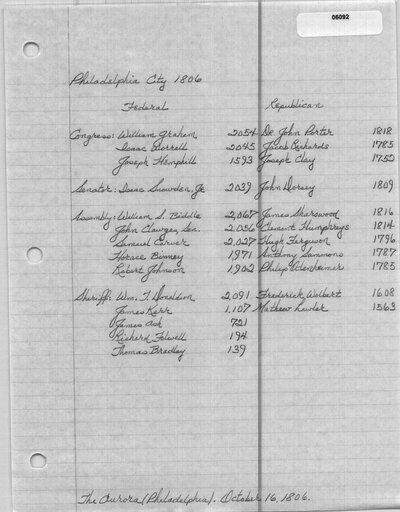 06092
Philadelphia City 1806
Federal Republican
Congress: William Graham 2054 Dr John Porter 1818
Isaac Worrell 2045 Jacob Richards 1785
Joseph Hemphill 1593 Joseph Clay 1752
Senator: Isaac Snowden, Jr 2039 John Dorsey 1809
Assembly: William S. Biddle 2,067 James Sharswood 1816
John Clawges, Sen. 2,056 Clement Humphreys 1814
Samuel Carver 2,027 Hugh Ferguson 1796
Horace Binney 1971 Anthony Simmons 1787
Robert Johnson 1902 Philip 1785
Sheriff: Wm. T. Donaldson 2,091 Frederick Wolbert 1608
James Kerr 1,107 Mathew Lawler 1563
James Ash 721
Richard Folwell 194
Thomas Bradley 139
The Aurora (Philadelphia). October 16, 1806.